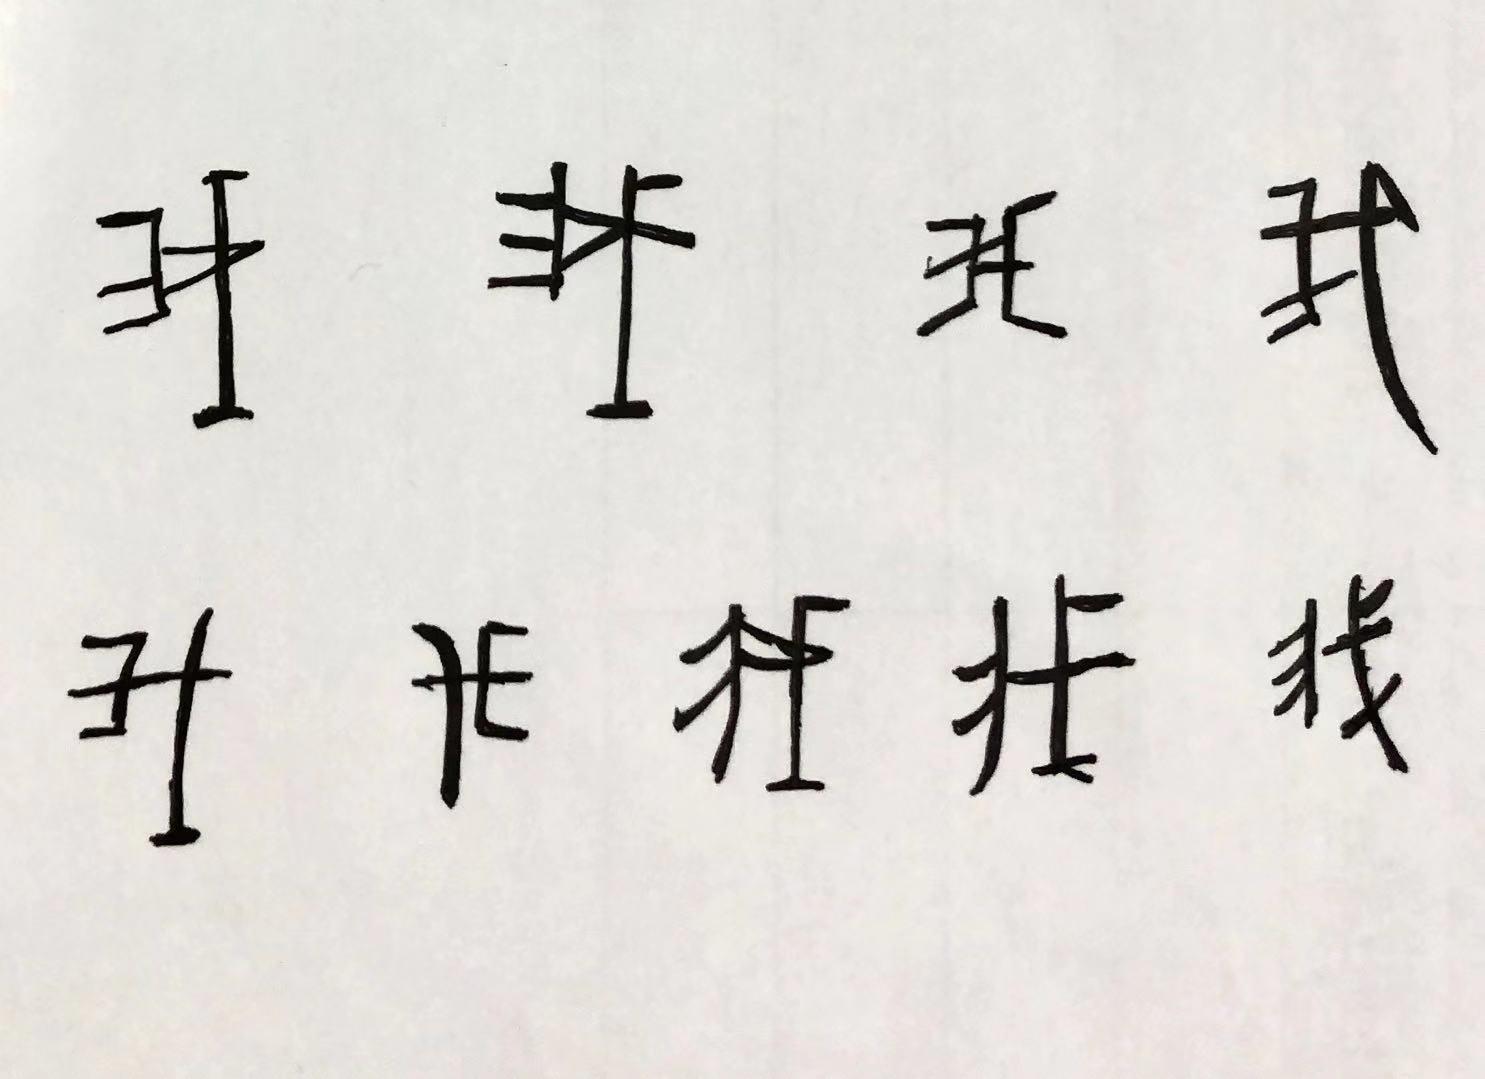 我 我 我 我
我 我 我 我 我